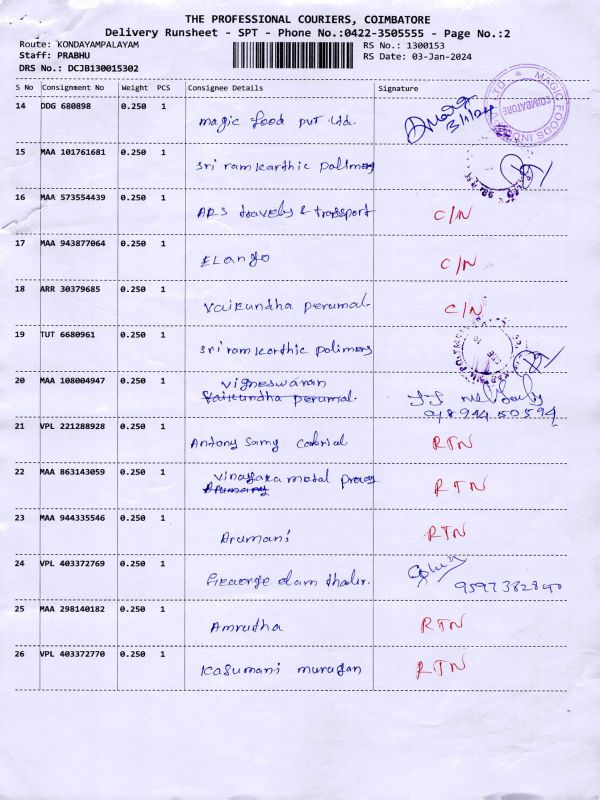 THE PROFESSIONAL COURIERS, COIMBATORE
Delivery Runsheet - SPT - Phone No.:0422-3505555 - Page No.:2
Route: KONDAYAMPALAYAM RS No.: 1300153
Staff: PRABHU RS Date: 03-Jan-2024
DRS No.: DCJB130015302
S No Consignment No Weight PCS Consignee Details Signature
14 DDG 680898 0.250 1 magic food pvt Ltd. 3/1/24 MAGIC FOODS COIMBATORE
15 MAA 101761681 0.250 1 sri ram karthic polimers
16 MAA 573554439 0.250 1 ARS travels & transport C/N
17 MAA 943877064 0.250 1 ELango C/N
18 ARR 30379685 0.250 1 Vaikundha perumal. C/N
19 TUT 6680961 0.250 1 sri ram karthic polimers
20 MAA 108004947 0.250 1 vigneswaran
Vaikundha perumal.
21 VPL 221288928 0.250 1 Antony Samy RTN
22 MAA 863143059 0.250 1 vinayaka metal RTN
Arumany
23 MAA 944335546 0.250 1 Arumani RTN
24 VPL 403372769 0.250 1
25 MAA 298140182 0.250 1 Amrutha RTN
26 VPL 403372770 0.250 1 Kasumani murugan RTN